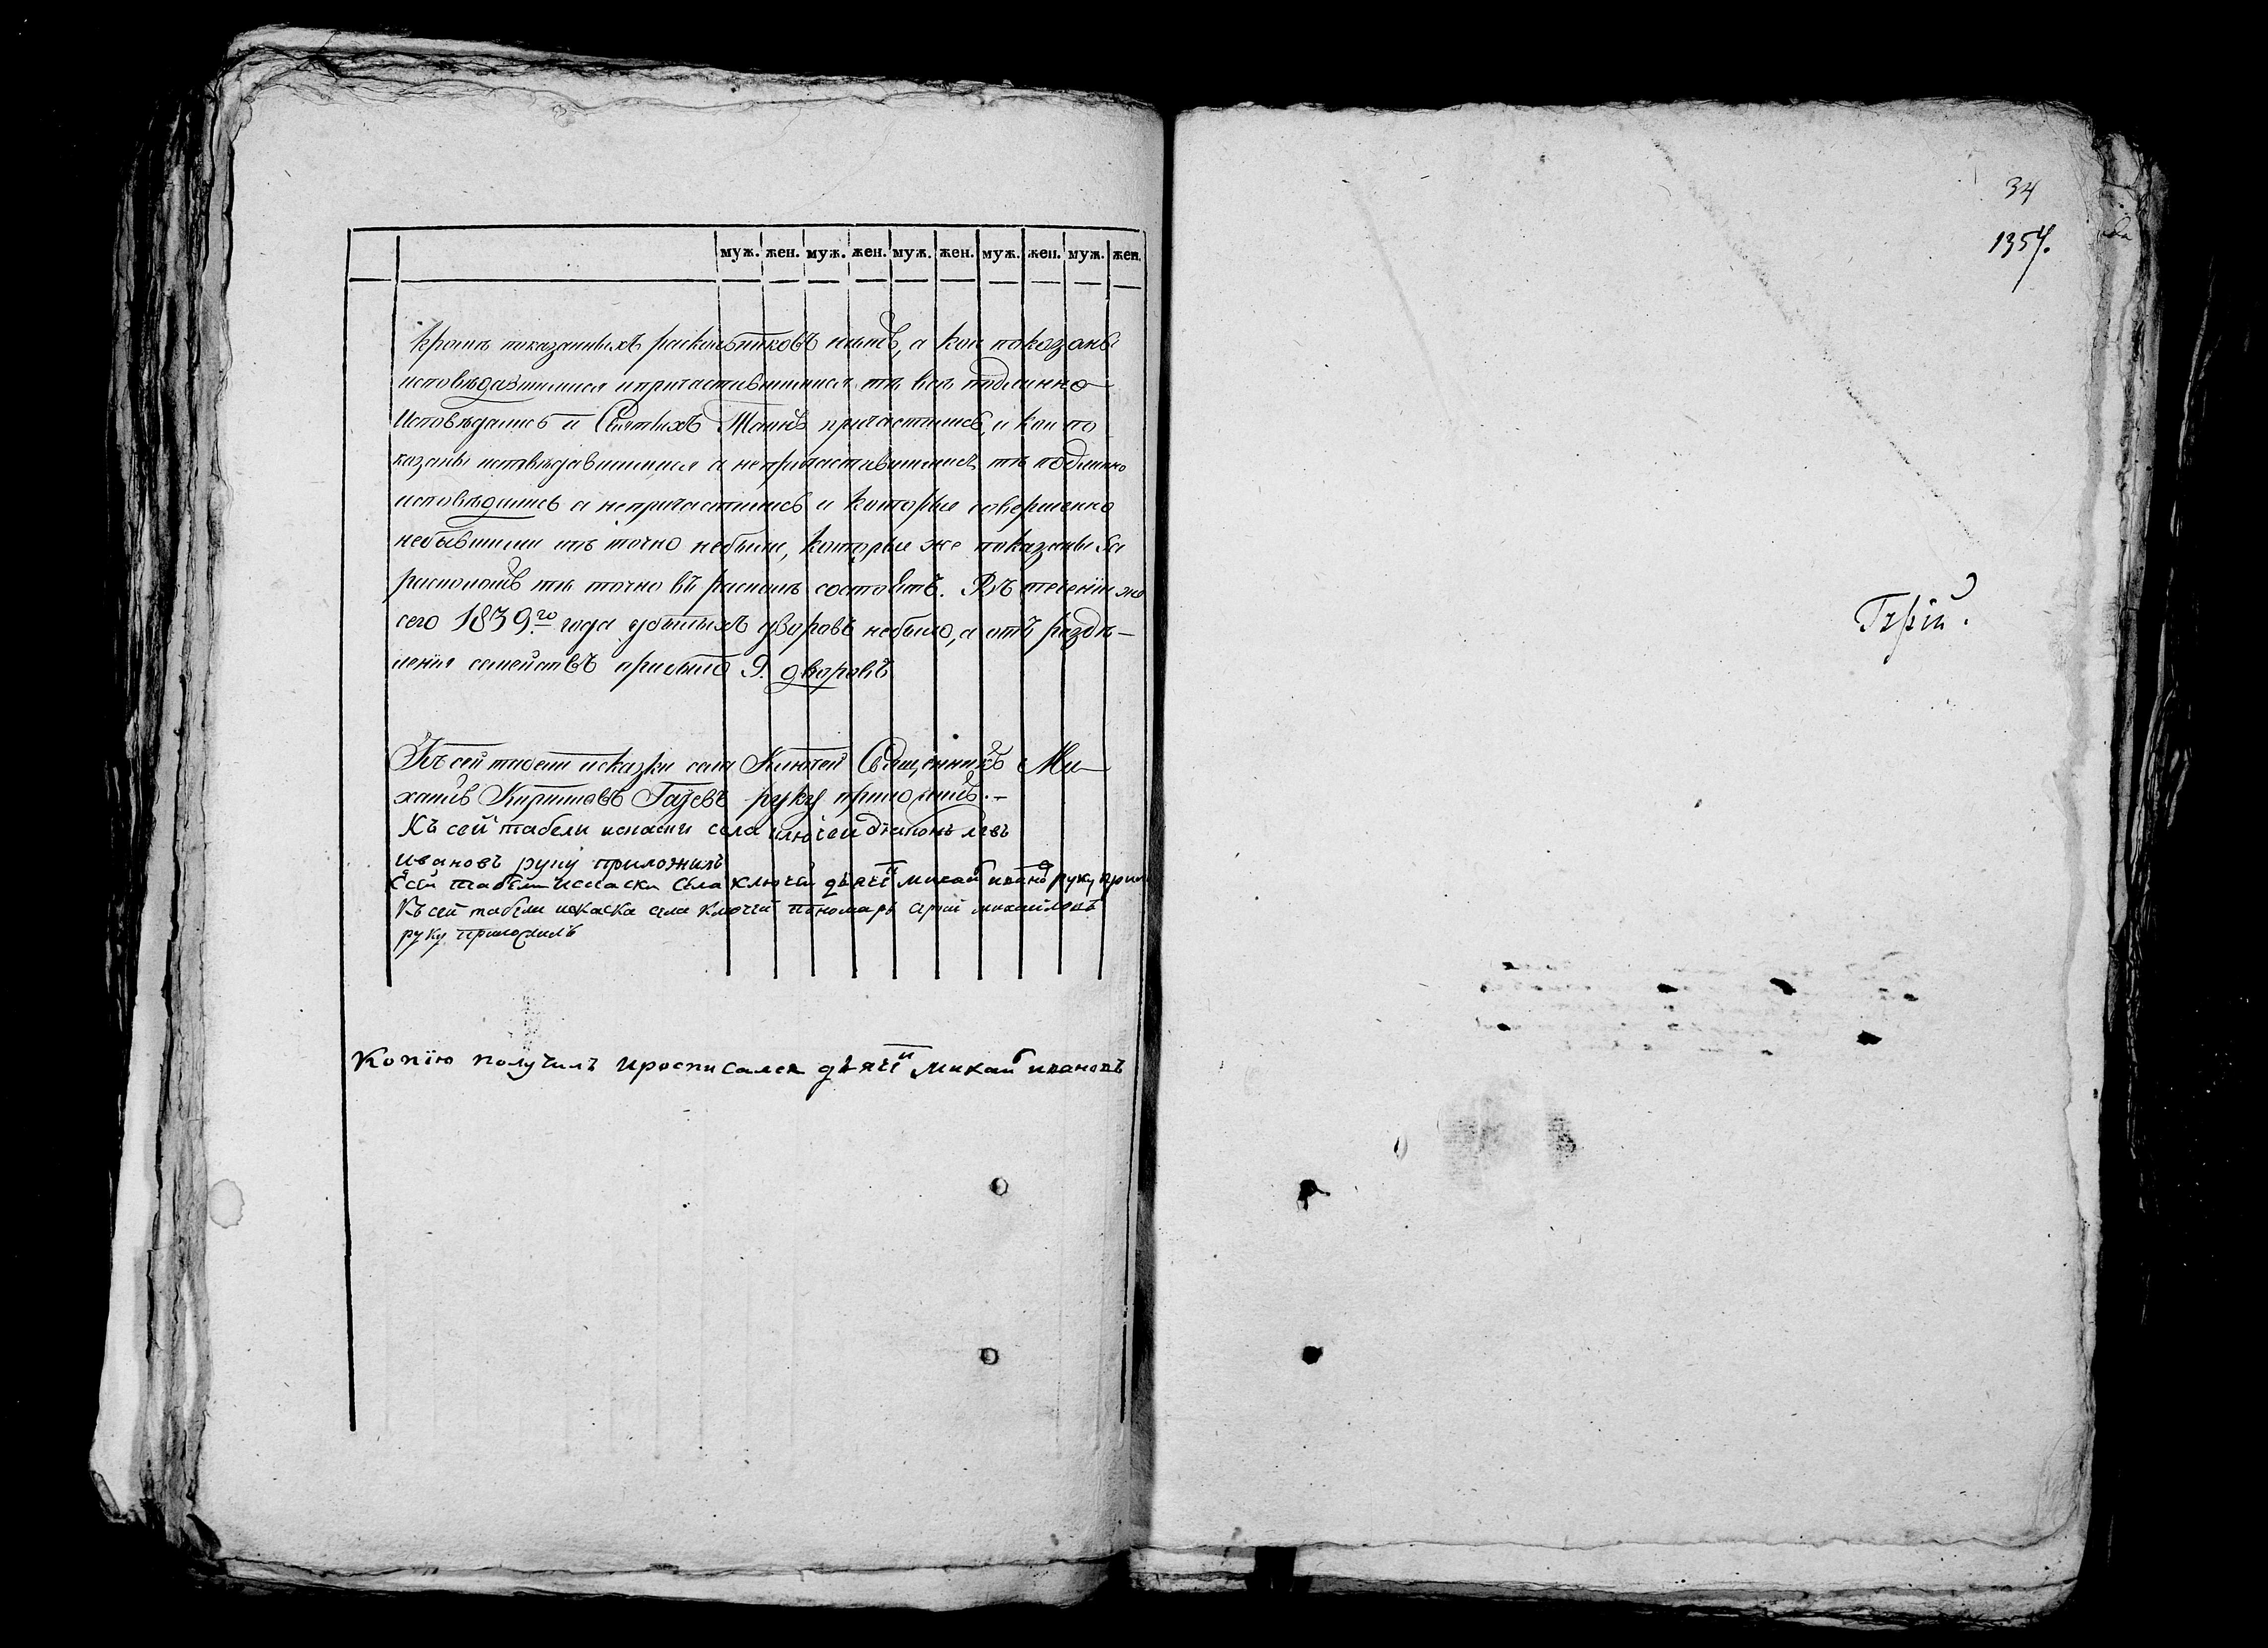 муж. жен. муж. жен. муж. жен. муж. жен. муж. жен.
Кромѣ показанныхъ раскольниковъ нѣтъ, а кои показаны
исповѣдавшимися и причастившимися тѣ всѣ подлинно
Исповѣдались и Святыхъ Таинъ причастились, и кои по
казаны исповѣдавшимися а непричастившимися тѣ подлинно
исповѣдались а непричастились и которые совершенно
небывшими тѣ точно небыли, которые же показаны въ
расколѣ тѣ точно въ расколѣ состоятъ. Въ теченіи же
сего 1839го года убылыхъ дворовъ небыло, а отъ раздѣ-
ленія семействъ прибыло 9. дворовъ
Къ сей табели исказки села Ключей Священникъ Ми-
хаилъ Кириловъ руку приложилъ.-
Къ сей табели искаски села ключей диаконъ левъ
Ивановъ руку приложилъ
Ксей табели искаски села ключей дьячей иванов руку прил
Къ сей табели искаска села ключей пономарь михайловъ
руку приложилъ
Копїю получилъ ироспи сался дьячей ивановъ
34
1354.